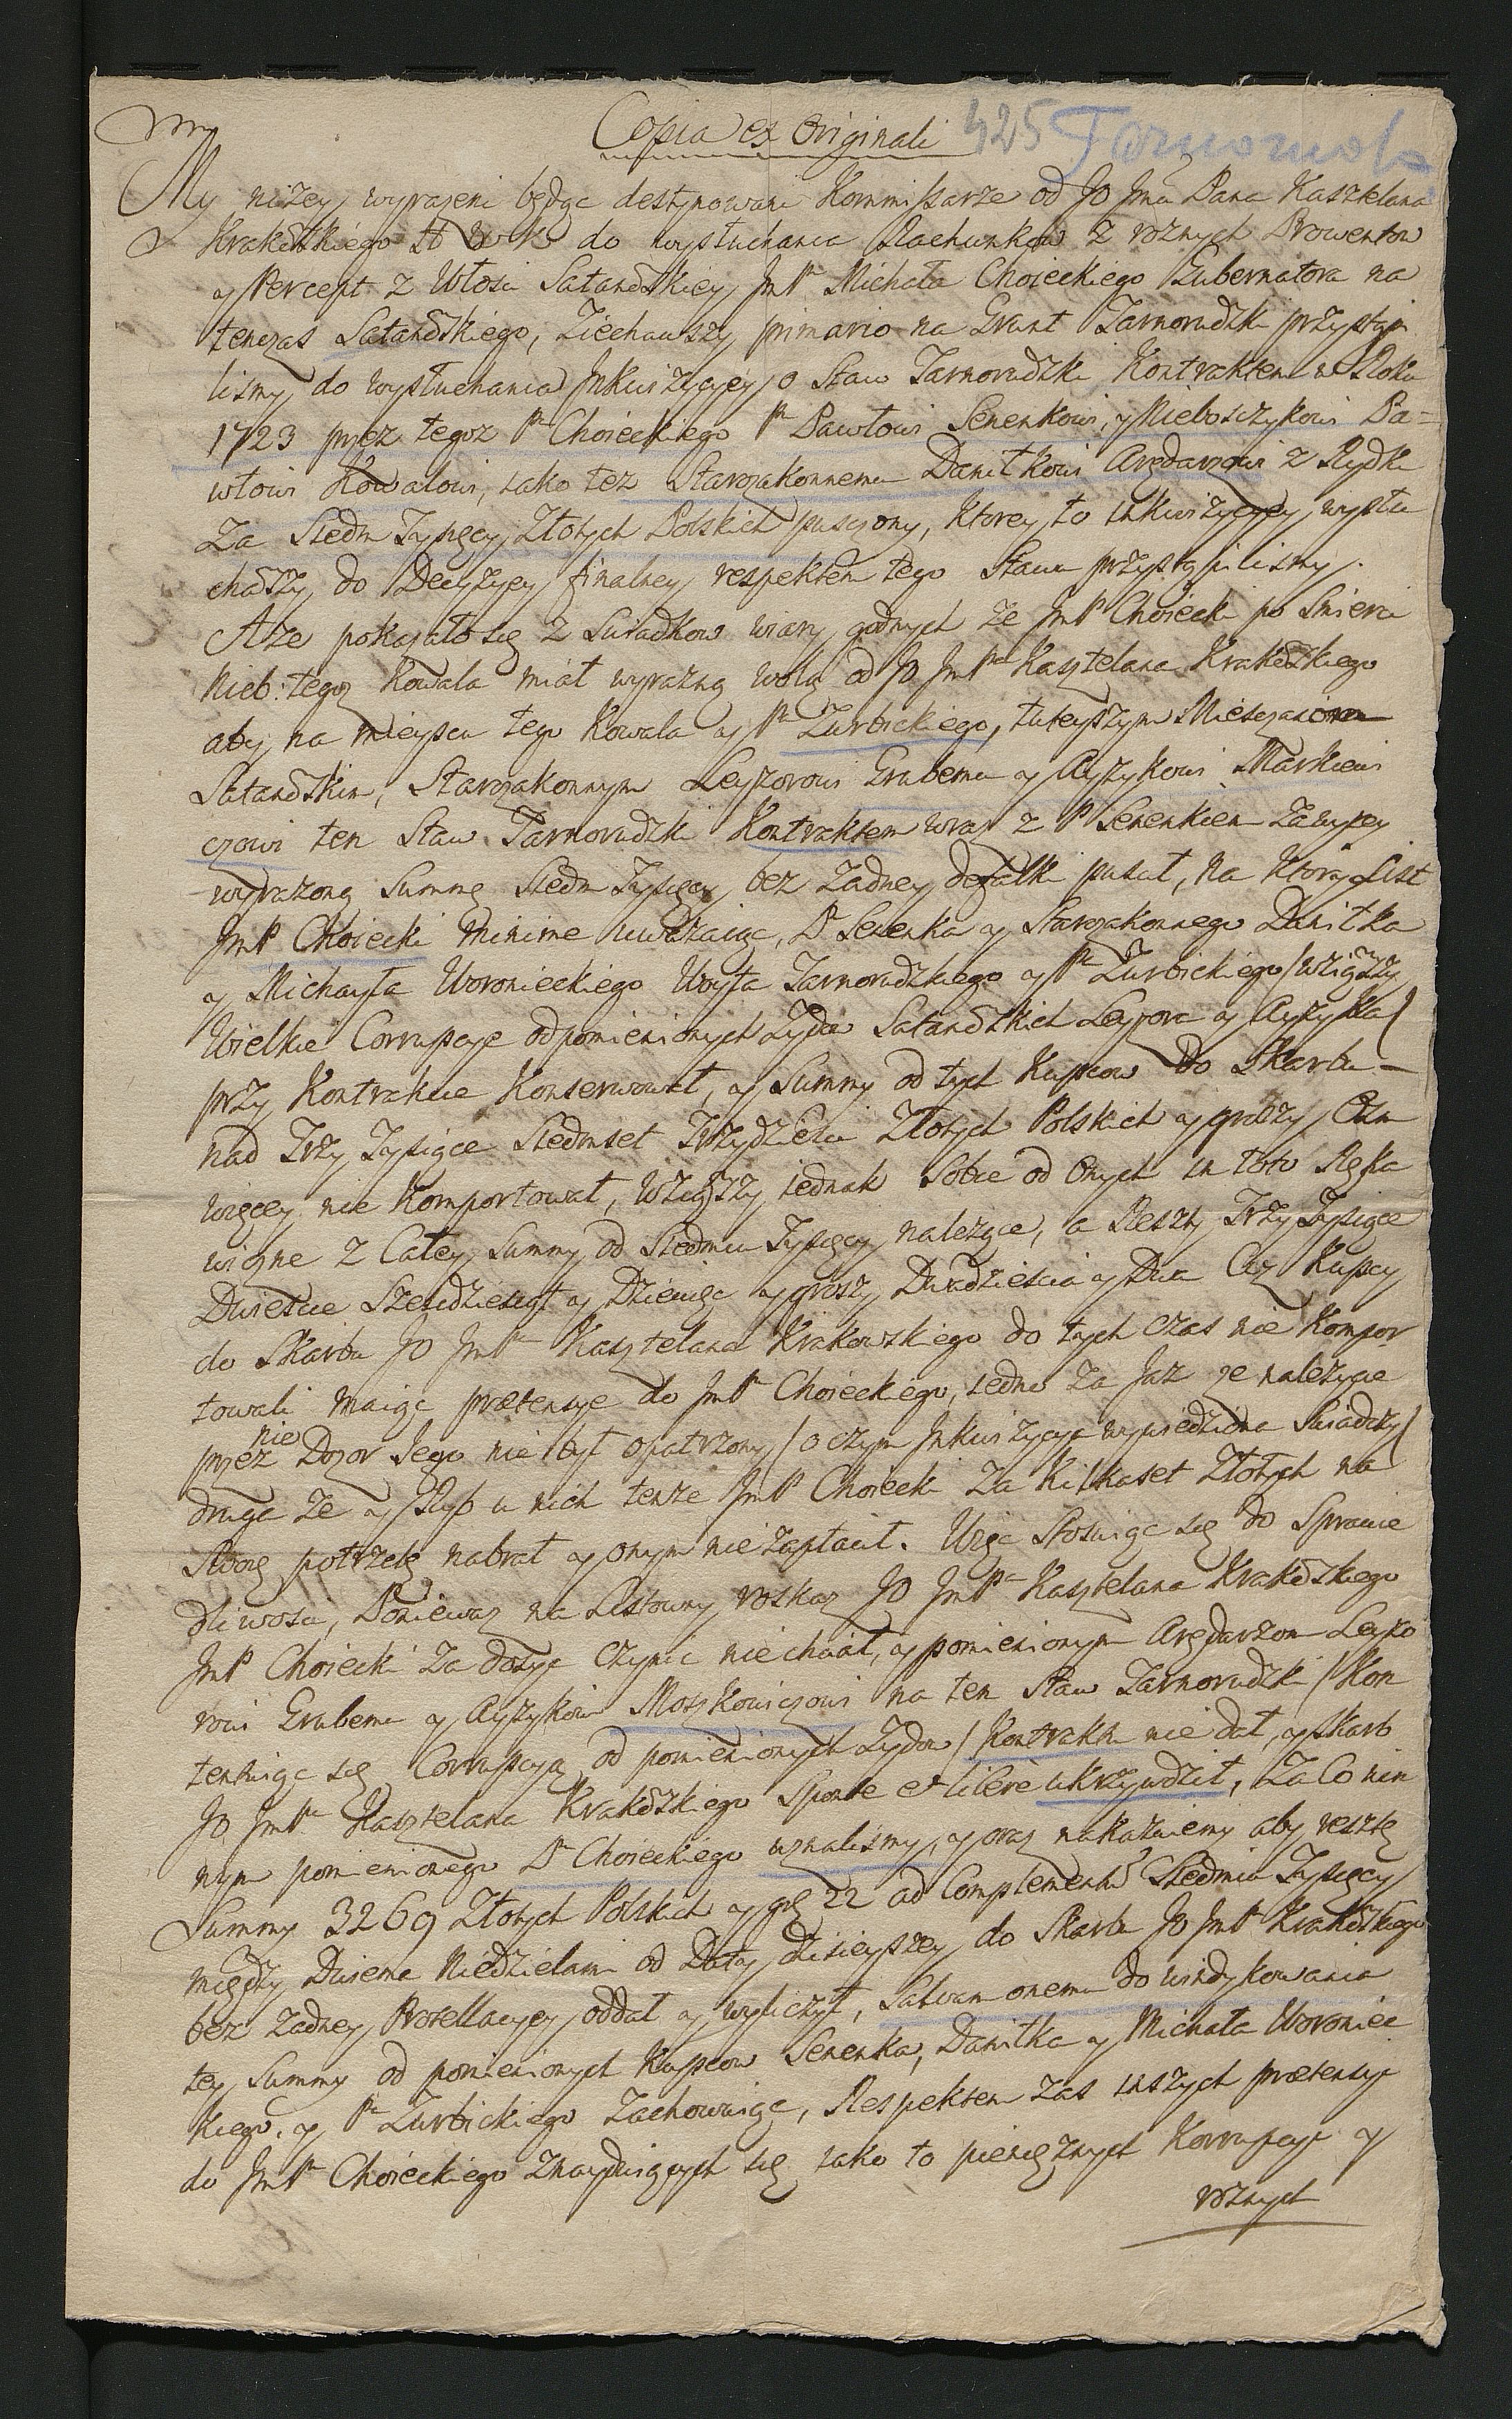 Copia ex Originali 425 Tarnoruda
My niżey wyrażeni będąc destynowani Kommissarze od JO Jmci Pana Kasztelana
Krakowskiego do wysłuchania Rachunkow z rożnych Prowentow
y Percept z Włosci Satanowskiey JmP. Michała Choieckiego Gubernatora na
tenczas Satanowskiego, Ziechawszy primario na Grunt Tarnorudzki przystąpi
lismy do wysłuchania Jnkwizycyey o Staw Tarnorudzki Kontraktem w Roku
1723 przez tegoz P. Choieckiego P. Pawłowi Senenkowi, y Nieboszczykowi Pa=
włowi Kowalowi, iako tez Starozakonnemu Daniłkowi Arędarzowi z Rydki
Za Siedm Tysięcy Złotych Polskich pusczony, ktorey to inkwizycyey wysłu
chawszy do Decyzyey finalney respektem tego Stawu przystąpilismy.
A ze pokazało się z Swiadkow wiary godnych ze JmP Choiecki po Smierci
Nieb: tegoz Kowala miał wyrazną wolą od JO JmP Kasztelana Krakowskiego
aby na mieyscu tego Kowala y P. Zurbickiego, tuteyszym Miesczanom
Satanowskim, Starozakonnym Leyzorowi Grubemu y Ayzykowi Markiewi
czowi ten Staw Tarnorudzki Kontraktem wraz z P Senenkiem za wyzey
wyrażoną Summę Siedm Tysięcy bez żadney defalki puscił, na ktory List
JmP Choiecki minime uważaiąc, P. Senenka y Starozakonnego Daniłka
y Michayła Woronieckiego Woyta Tarnorudzkiego y P. Zurbickiego /wziąwszy
Wielkie Corrupcye od pomienionych Zydow Satanowskich Leyzora y Ayzyka/
przy Kontrakcie Konserwował, y Summy od tych Kupcow do Skarbu
nad Trzy Tysiące Siedmset Trzydziesci Złotych Polskich y groszy Osm
więcey nie Komportował, Wziąwszy iednak Sobie od Onych in toto Ręka
wiczne z Całey Summy od Siedmiu Tysięcy należące, a Reszty Trzy Tysiące
Dwiescie Szescdziesiąt y Dziewięc y groszy Dwadziescia y Dwa Ciz Kupcy
do Skarbu JO JmP Kasztelana Krakowskiego do tych czas nie Kompor
towali maiąc prætensye do JmP. Choieckiego, iedno za Jaz ze należycie
przez nie Dozor Jego nie był opatrzony /o czym Jnkwizycya wywiedziona Swiadczy/
druga ze y Ryb u nich tenże JmP Choiecki za Kilkaset Złotych na
Swoię potrzebę nabrał y onym nie zapłacił. Więc Stosuiąc się do Sprawie
dliwosci, Ponieważ na Listowny roskaz JO JmP Kasztelana Krakowskiego
JmP Choiecki za dosyc Czynic nie chciał, y pomienionym Arędarzom Leyzo
rowi Grubemu y Ayzykowi Moszkowiczowi na ten Staw Tarnorudzki /Kon
tentuiąc się Corrupcyą od pomienionych Zydow/ Kontraktu nie dał, y Skarb
JO JmP. Kasztelana Krakowskiego Sponte et libere ukrzywdził, Za Co win
nym pomienionego P. Choieckiego uznalismy, y oraz nakazuiemy aby resztę
Summy 3269 Złotych Polskich y gr 22 ad Complementum Siedmiu Tysięcy
między Dwiema Niedzielami od Daty dzisieyszey do Skarbu JO JmP Krakowskiego
bez zadney Protellacyey oddał y wyliczył, Salvam onemu do windykowania
tey Summy od pomienionych Kupcow Senenka, Daniłka y Michała Woroniec
kiego, y P. Zurbickiego Zachowuiąc, Respektem zas inszych prætensyi
do JmP. Choieckiego znayduiących się iako to pieniężnych Korrupcyi y
rożnych